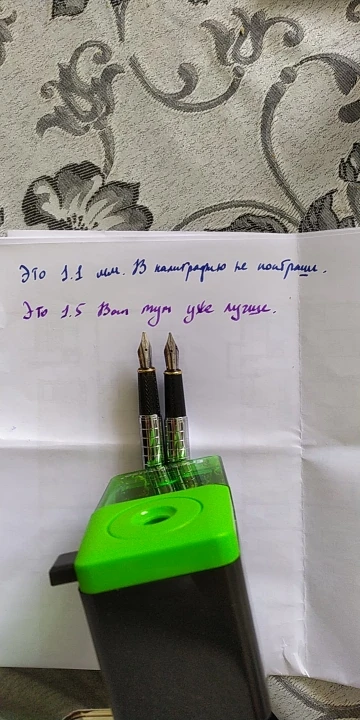 Это 1.1 мм. В калиграфию не поиграеш.
Это 1.5 Вот тут уже лучше.